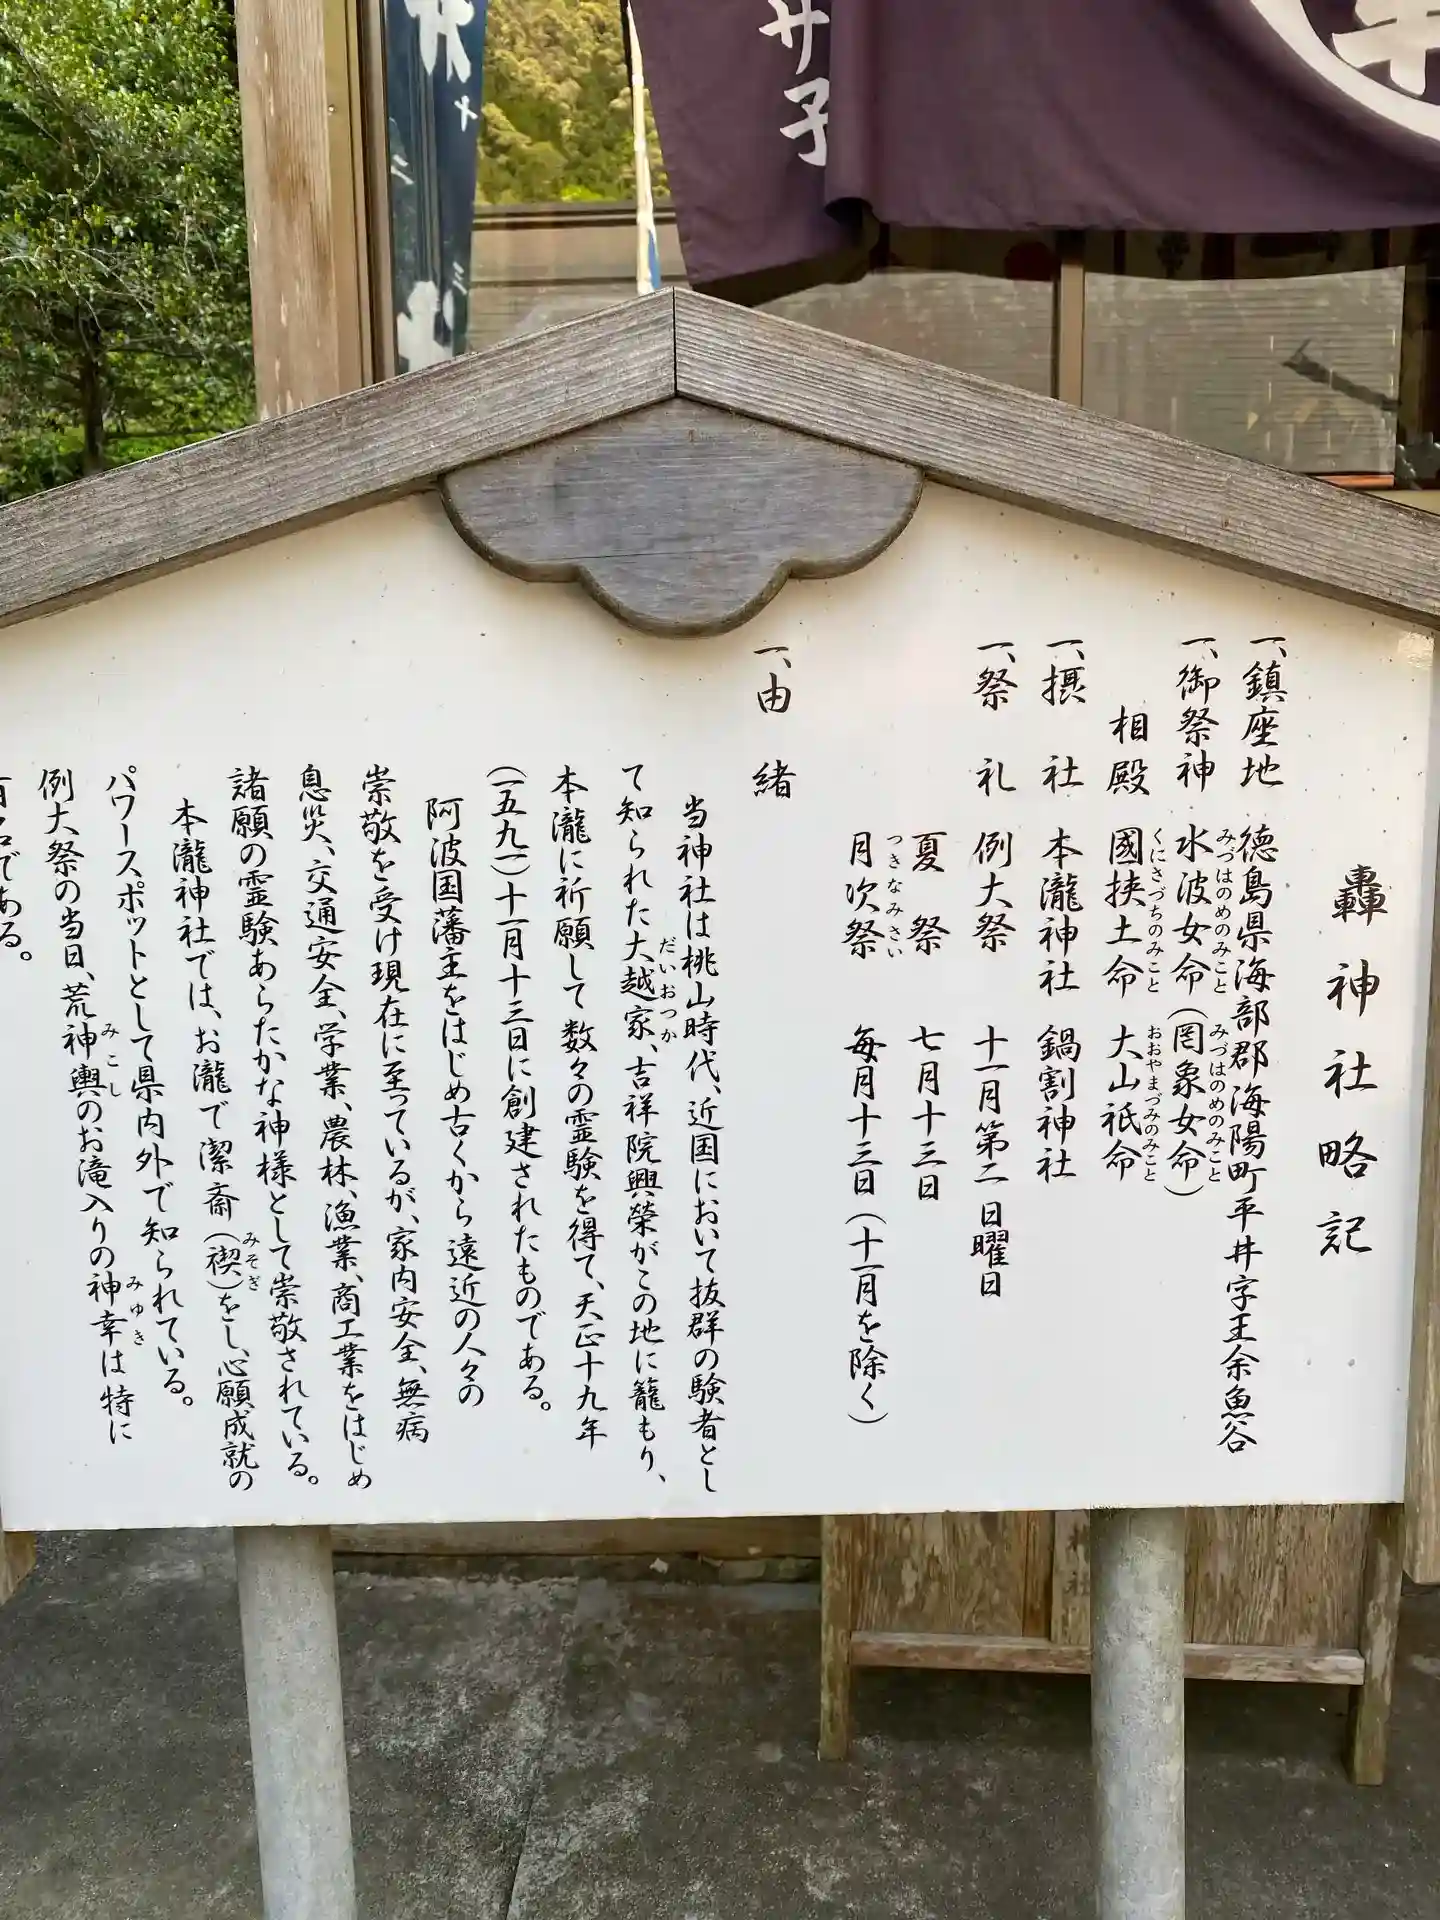 轟神社略記
一、鎮座地 徳島県海部郡海陽町平井字王余魚谷
一、御祭神 水波女命（罔象女命）
みづはのめのみこと みづはのめのみこと
相殿 國挟土命 大山祇命
くにさづちのみこと おおやまづみのみこと
一、摂社 本瀧神社 鍋割神社
一、祭礼 例大祭 十一月第二日曜日
夏祭 七月十三日
月次祭 毎月十三日（十一月を除く）
つきなみさい
一、由緒
当神社は桃山時代、近国において抜群の験者とし
て知られた大越家、吉祥院興榮がこの地に籠もり、
だいおつか
本瀧に祈願して数々の霊験を得て、天正十九年
（一五九一）十一月十三日に創建されたものである。
阿波国藩主をはじめ古くから遠近の人々の
崇敬を受け現在に至っているが、家内安全、無病
息災、交通安全、学業、農林、漁業、商工業をはじめ
諸願の霊験あらたかな神様として崇敬されている。
本瀧神社では、お瀧で潔斎（禊）をし、心願成就の
みそぎ
パワースポットとして県内外で知られている。
例大祭の当日、荒神輿のお滝入りの神幸は特に
みこし みゆき
である。
サ子